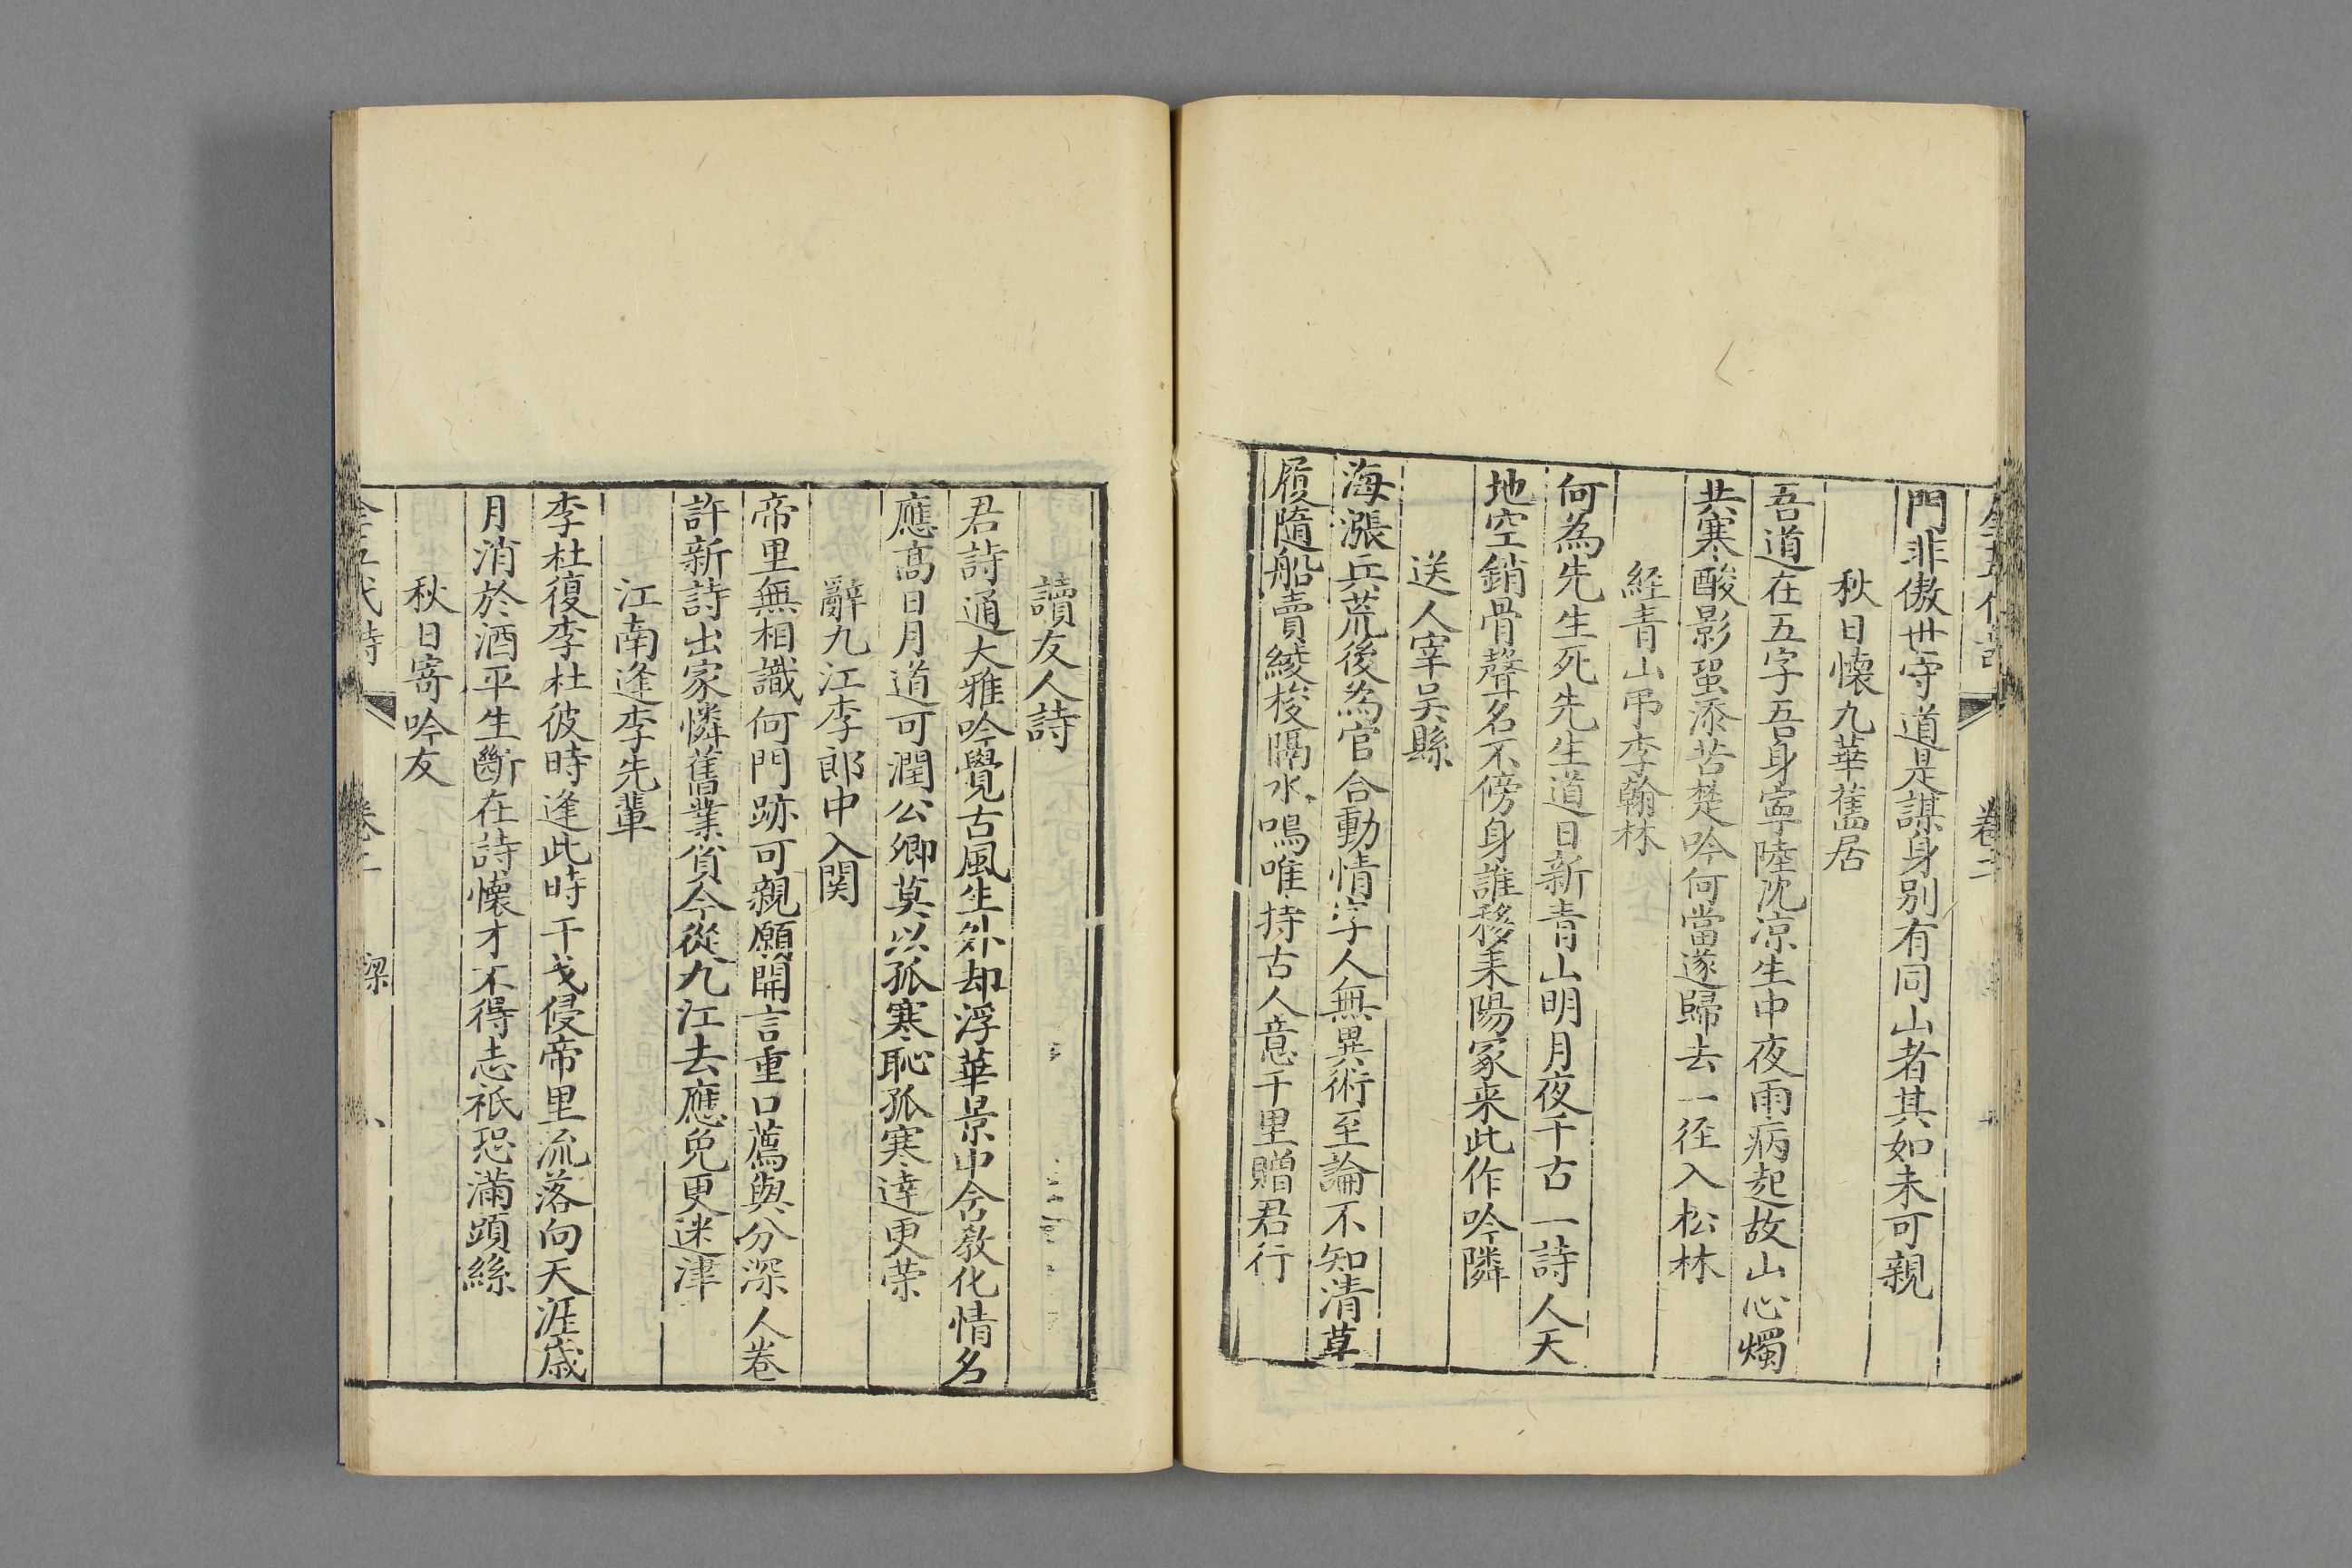 門非傲世守道是謀身别有同山者其如未可親
秋日懐九華舊居
吾道在五字吾身寧陸沈凉生中夜雨病起故山心燭
共寒酸影蛩添苦楚吟何當遂歸去一径入松林
経青山弔李翰林
何為先生死先生道日新青山明月夜千古一詩人天
地空銷骨聲名不傍身誰移耒陽冢来此作吟隣
送人宰吴縣
海漲兵荒後為官合動情字人無異術至論不如清草
履隨船賣綾梭隔水鳴唯持古人意千里贈君行
讀友人詩
君詩通大雅吟覺古風生外却浮華景中含教化情名
應髙日月道可潤公卿莫以孤寒恥孤寒達更荣
辭九江李郎中入関
帝里無相識何門跡可親願開言重口薦與分深人卷
許新詩出家憐舊業貧今從九江去應免更迷津
江南逢李先輩
李杜復李杜彼時逢此時干戈侵帝里流落向天涯歳
月消於酒平生斷在詩懐才不得志祇恐滿頭絲
秋日寄吟友